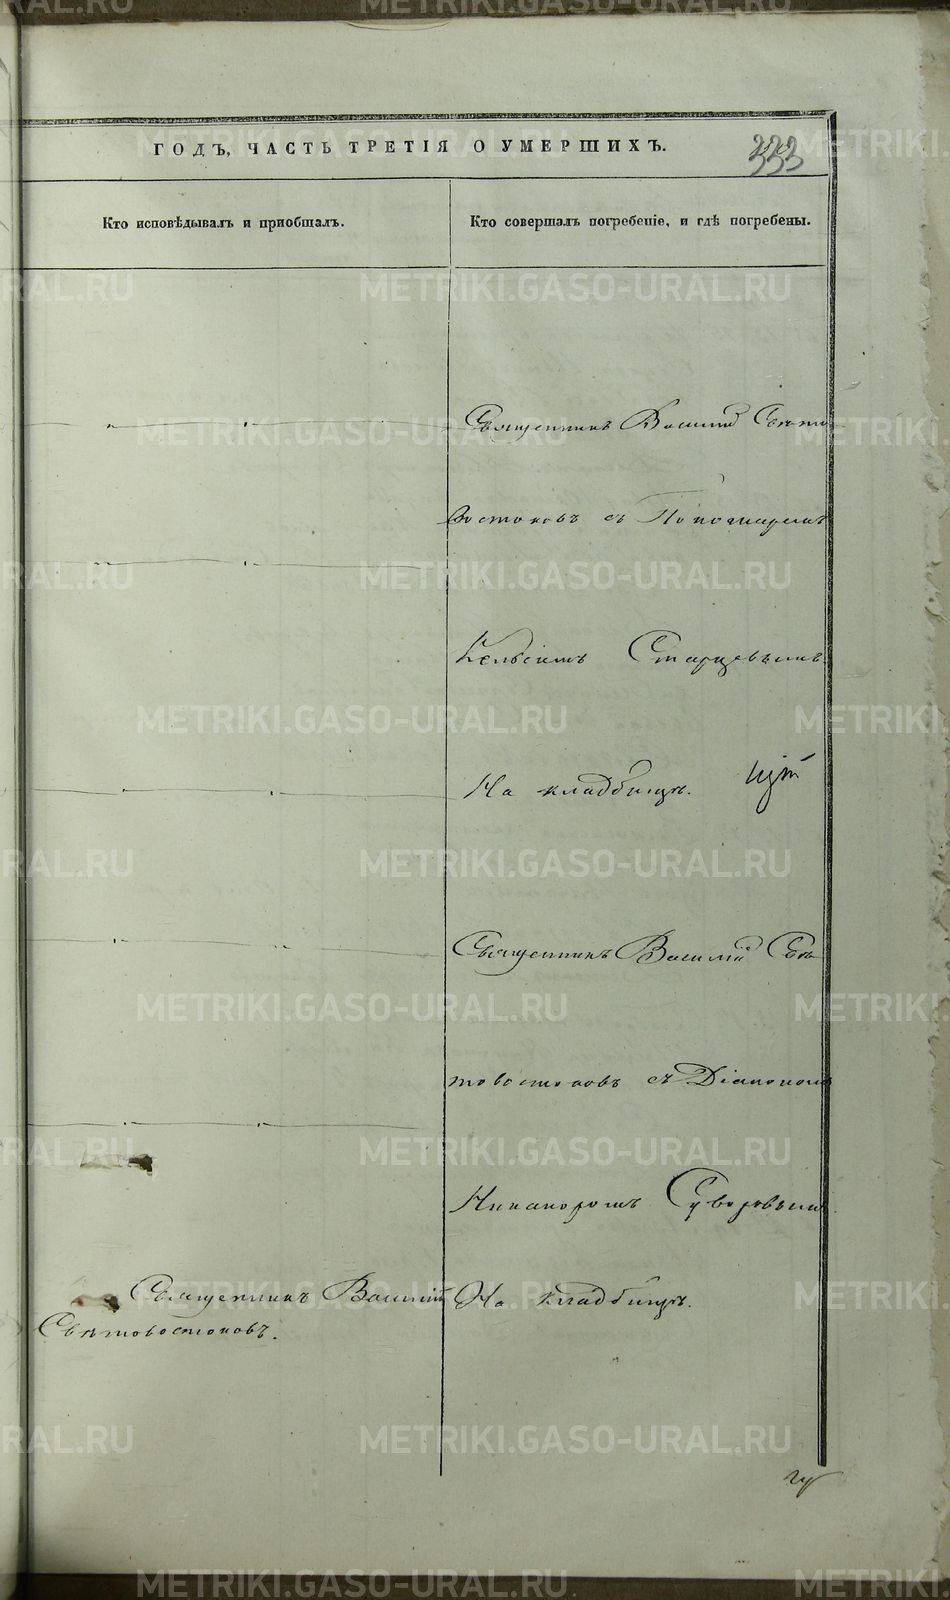 ГОДЪ, ЧАСТЬ ТРЕТІЯ О УМЕРШИХЪ.
333
Кто исповѣдывалъ и пріобщалъ.
Кто совершалъ погребеніе, и гдѣ погребены.
Священникъ Василій Свѣто
востоковъ съ Пономаремъ
Келсіемъ Старцевымъ
На кладбищѣ.
Священникъ Василій Свѣ-
товостоковъ съ Діакономъ
Никаноромъ Суворовымъ
Священникъ Василій
Свѣтовостоковъ.
На кладбищѣ.
METRIKI.GASO-URAL.RU